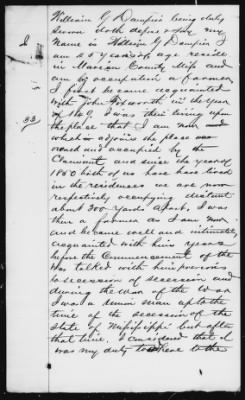 William G Dampier being duly
sworn doth depose & say my
Name is William G Dampier I
am 45 years of age reside
in Marion County Miss and
am by occupation a farmer
I first became acquainted
with John in the year
of I was then living upon
the place that I am now
which is adjoins the place now
owned and occupied by the
Claimant and since the year of
1860 both of us have have lived
in the residences we are now
respectively occupying distant
about 300 yards apart, I was
then a farmer as I am now
and became well and intimately
acquainted with his years
before the Commencement of the
War talked with him previous
to secession of secession and
during the War of the War
I was a Union man up to the
time of the secession of the
State of Mississippi but after
that time, I considered that it
was my duty to to the